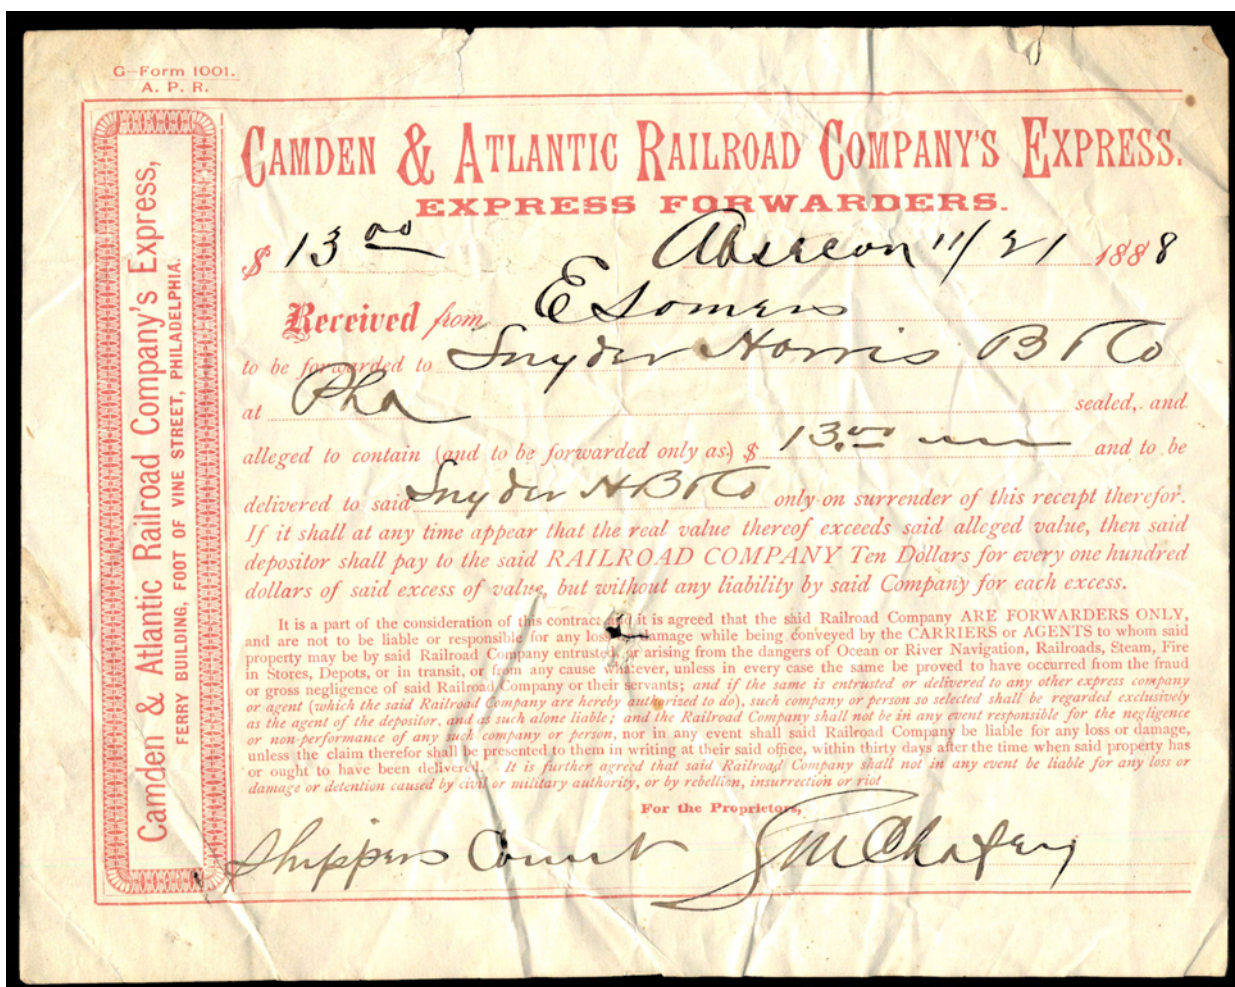 G-Form 1001.
A. P. R.
Camden & Atlantic Railroad Company's Express,
FERRY BUILDING, FOOT OF VINE STREET, PHILADELPHIA.
CAMDEN & ATLANTIC RAILROAD COMPANY'S EXPRESS.
EXPRESS FORWARDERS.
$ 13 00 Absecon 11/21 1888
Received from E Somers
to be forwarded to Snyder Harris B & Co
at Pha sealed, and
alleged to contain (and to be forwarded only as) $ 13.00 and to be
delivered to said Snyder H B & Co only on surrender of this receipt therefor.
If it shall at any time appear that the real value thereof exceeds said alleged value, then said
depositor shall pay to the said RAILROAD COMPANY Ten Dollars for every one hundred
dollars of said excess of value, but without any liability by said Company for each excess.
It is a part of the consideration of this contract and it is agreed that the said Railroad Company ARE FORWARDERS ONLY,
and are not to be liable or responsible for any loss or damage while being conveyed by the CARRIERS or AGENTS to whom said
property may be by said Railroad Company entrusted, or arising from the dangers of Ocean or River Navigation, Railroads, Steam, Fire
in Stores, Depots, or in transit, or from any cause whatever, unless in every case the same be proved to have occurred from the fraud
or gross negligence of said Railroad Company or their servants; and if the same is entrusted or delivered to any other express company
or agent (which the said Railroad Company are hereby authorized to do), such company or person so selected shall be regarded exclusively
as the agent of the depositor, and as such alone liable; and the Railroad Company shall not be in any event responsible for the negligence
or non-performance of any such company or person, nor in any event shall said Railroad Company be liable for any loss or damage,
unless the claim therefor shall be presented to them in writing at their said office, within thirty days after the time when said property has
or ought to have been delivered. It is further agreed that said Railroad Company shall not in any event be liable for any loss or
damage or detention caused by civil or military authority, or by rebellion, insurrection or riot
For the Proprietors,
Shippers Count